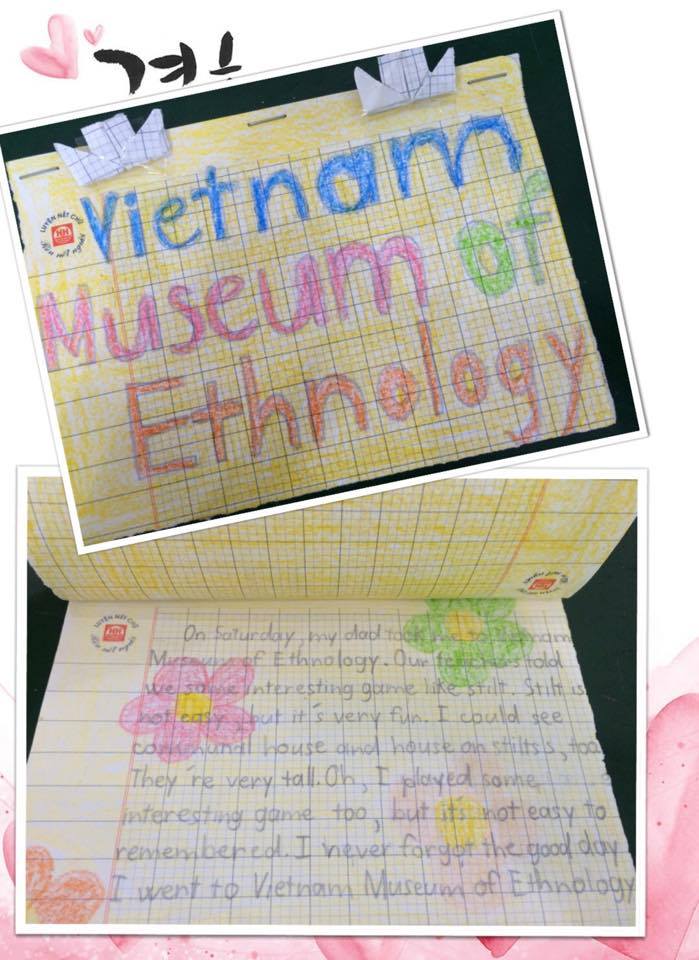 Vietnam
LUYỆN NÉT CHỮ
HH
Museum of
Ethnology
LUYỆN NÉT CHỮ
HH
On Saturday, my dad took me to Vietnam
Museum of Ethnology. Our teachers told
we some interesting game like stilt. Stilt is
not easy, but it's very fun. I could see
communal house and house on stilts s, too.
They're very tall. Oh, I played some
interesting game too, but it's not easy to
remembered. I never forgot the good day
I went to Vietnam Museum of Ethnology